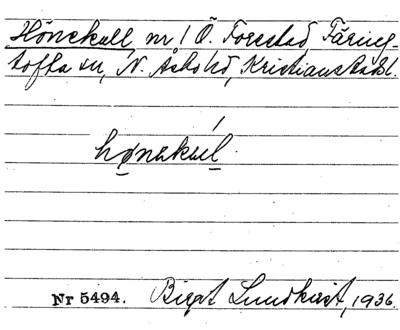 Hönekull, nr 1 Ö. Forestad, Färing-
tofta sn, N. Åsbo hd, Kristianstads l.
hønəkúl.
Nr 5494. Birgit Lundkvist, 1936.